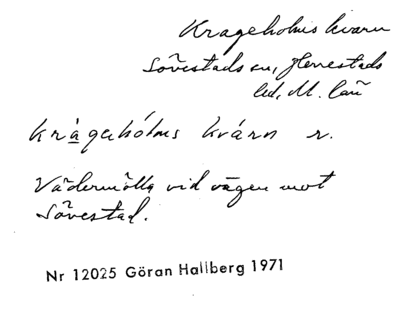 Krageholms kvarn
Sövestads sn, Herrestads
hd, M. län
kràgehólms kvárn r.
Vädermölla vid vägen mot
Sövestad.
Nr 12025 Göran Hallberg 1971